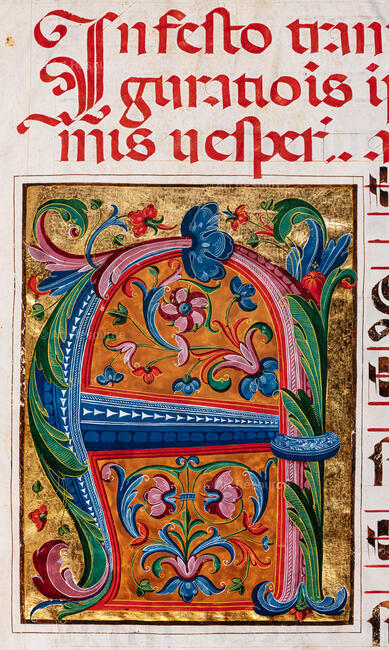 In festo tran
guratiois i
mis uesper̄..
A